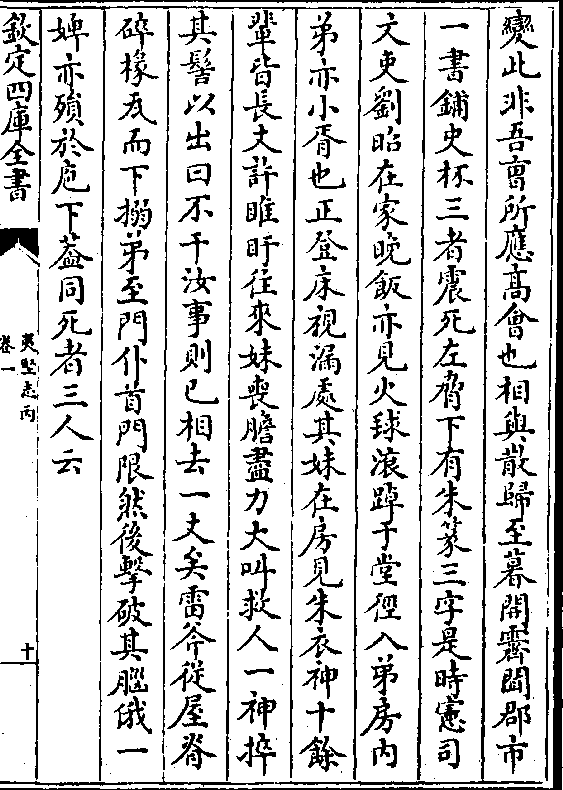 變此非吾曹所應高會也相與散歸至暮開霽聞郡市
一書鋪史杯三者震死左脅下有朱篆三字是時憲司
文吏劉昭在家晚飯亦見火毬滾踔于堂徑入弟房内
弟亦小胥也正登床視漏處其妹在房見朱衣神十餘
輩皆長丈許睢盱往來妹喪膽盡力大叫救人一神捽
其髻以出曰不干汝事則已相去一丈矣雷斧從屋脊
碎椽瓦而下搦弟至門仆首門限然後擊破其腦俄一
婢亦殞於庖下葢同死者三人云
欽定四庫全書
夷堅志丙
卷一
十